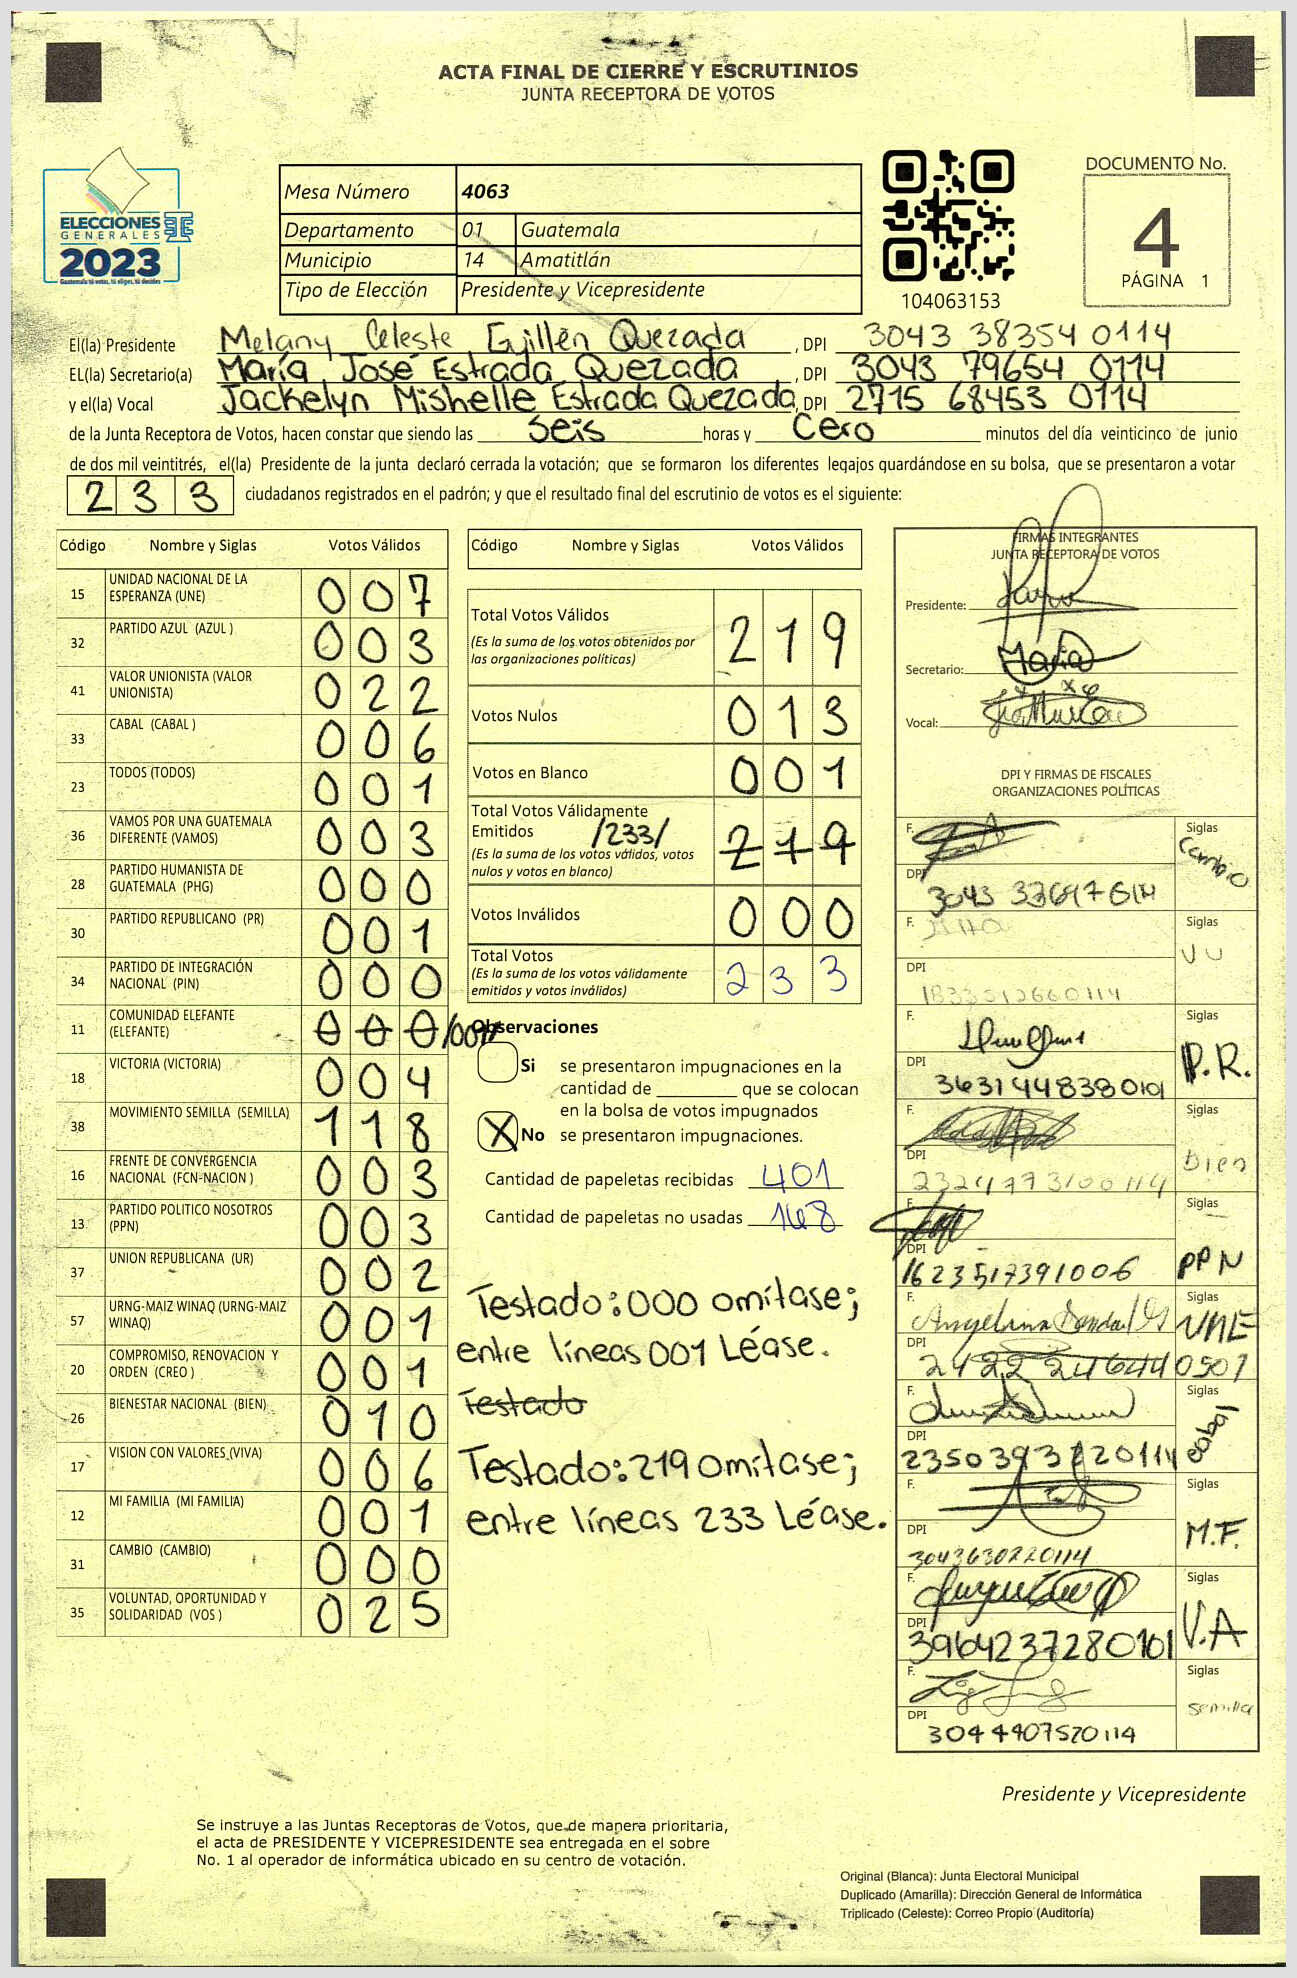 ACTA FINAL DE CIERRE Y ESCRUTINIOS
JUNTA RECEPTORA DE VOTOS
ELECCIONES
GENERALES
2023
Guatemala tú votas, tú eliges, tú decides
Mesa Número 4063
Departamento 01 Guatemala
Municipio 14 Amatitlán
Tipo de Elección Presidente y Vicepresidente
104063153
DOCUMENTO No.
4
PÁGINA 1
El(la) Presidente Melany Celeste Guillén Quezada, DPI 3043 38354 0114
EL(la) Secretario(a) María José Estrada Quezada, DPI 3043 79654 0114
y el(la) Vocal Jackelyn Mishelle Estrada Quezada, DPI 2715 68453 0114
de la Junta Receptora de Votos, hacen constar que siendo las seis horas y cero minutos del día veinticinco de junio
de dos mil veintitrés, el(la) Presidente de la junta declaró cerrada la votación; que se formaron los diferentes legajos guardándose en su bolsa, que se presentaron a votar
233 ciudadanos registrados en el padrón; y que el resultado final del escrutinio de votos es el siguiente:
Código Nombre y Siglas Votos Válidos
15 UNIDAD NACIONAL DE LA ESPERANZA (UNE) 007
32 PARTIDO AZUL (AZUL ) 003
41 VALOR UNIONISTA (VALOR UNIONISTA) 022
33 CABAL (CABAL ) 006
23 TODOS (TODOS) 001
36 VAMOS POR UNA GUATEMALA DIFERENTE (VAMOS) 003
28 PARTIDO HUMANISTA DE GUATEMALA (PHG) 000
30 PARTIDO REPUBLICANO (PR) 001
34 PARTIDO DE INTEGRACIÓN NACIONAL (PIN) 000
11 COMUNIDAD ELEFANTE (ELEFANTE) 000 /001/
18 VICTORIA (VICTORIA) 004
38 MOVIMIENTO SEMILLA (SEMILLA) 118
16 FRENTE DE CONVERGENCIA NACIONAL (FCN-NACION ) 003
13 PARTIDO POLITICO NOSOTROS (PPN) 003
37 UNION REPUBLICANA (UR) 002
57 URNG-MAIZ WINAQ (URNG-MAIZ WINAQ) 001
20 COMPROMISO, RENOVACION Y ORDEN (CREO ) 001
26 BIENESTAR NACIONAL (BIEN) 010
17 VISION CON VALORES (VIVA) 006
12 MI FAMILIA (MI FAMILIA) 001
31 CAMBIO (CAMBIO) 000
35 VOLUNTAD, OPORTUNIDAD Y SOLIDARIDAD (VOS ) 025
Código Nombre y Siglas Votos Válidos
Total Votos Válidos 219
(Es la suma de los votos obtenidos por
las organizaciones políticas)
Votos Nulos 013
Votos en Blanco 001
Total Votos Válidamente
Emitidos /233/ 219
(Es la suma de los votos válidos, votos
nulos y votos en blanco)
Votos Inválidos 000
Total Votos 233
(Es la suma de los votos válidamente
emitidos y votos inválidos)
Observaciones
Si se presentaron impugnaciones en la
cantidad de ________ que se colocan
en la bolsa de votos impugnados
X No se presentaron impugnaciones.
Cantidad de papeletas recibidas 401
Cantidad de papeletas no usadas 168
Testado: 000 omítase;
entre líneas 001 Léase.
Testado
Testado: 219 omítase;
entre líneas 233 Léase.
FIRMAS INTEGRANTES
JUNTA RECEPTORA DE VOTOS
Presidente:
Secretario: María
Vocal:
DPI Y FIRMAS DE FISCALES
ORGANIZACIONES POLÍTICAS
F. Siglas Cambio
DPI
F. Siglas VU
DPI 1833512660114
F. Siglas P.R.
DPI 3631448380101
F. Siglas Bien
DPI 2324773100114
F. Siglas PPN
DPI 1623517391006
F. Siglas UNE
DPI 2422 24644 0501
F. Siglas Cabal
DPI 2350393220114
F. Siglas M.F.
DPI 3043630220114
F. Siglas V.A
DPI 3964237280101
F. Siglas Semilla
DPI 3044407520114
Presidente y Vicepresidente
Se instruye a las Juntas Receptoras de Votos, que de manera prioritaria,
el acta de PRESIDENTE Y VICEPRESIDENTE sea entregada en el sobre
No. 1 al operador de informática ubicado en su centro de votación.
Original (Blanca): Junta Electoral Municipal
Duplicado (Amarilla): Dirección General de Informática
Triplicado (Celeste): Correo Propio (Auditoría)